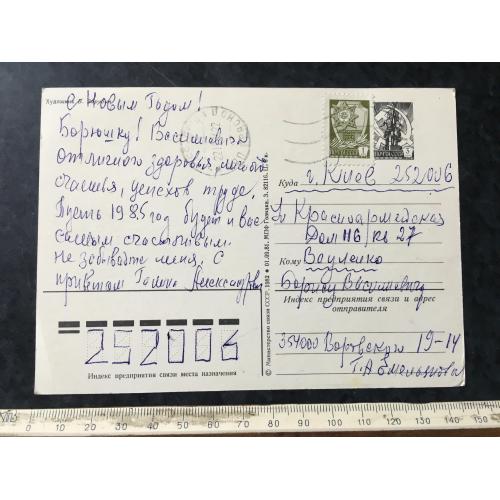 Художник В.
С Новым Годом!
Борюшку! Васильевича
отличного здоровья много
счастья, успехов труде.
Пусть 1985 год будет и вас
самым счастливым.
Не забывайте меня. С
приветом Галина Александровна
252006
Индекс предприятия связи места назначения
© Министерство связи СССР, 1982
Куда г. Киев 252006
ул Красноармейская
Дом 116/кв 27
Кому Вауленко
Борису Васильевичу
Индекс предприятия связи и адрес
отправителя
354000 Воровского 19-14
Г.А.
0 10 20 30 40 50 60 70 80 90 100 110 120 130 140 150